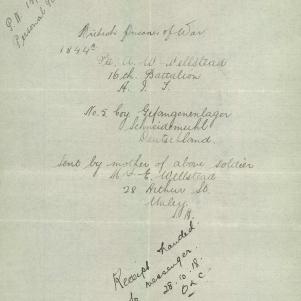 British Prisoner of War
1844A
Pte. A. W. Wellstead
16th. Battalion
A. I. F.
No. 5 Coy Gefangenenlager
Schneidemuhl
Deutschland.
Sent by mother of above soldier
M E. Wellstead
28 Arthur St
Unley.
S.A.
Receipt handed
to messenger.
28.10.18.